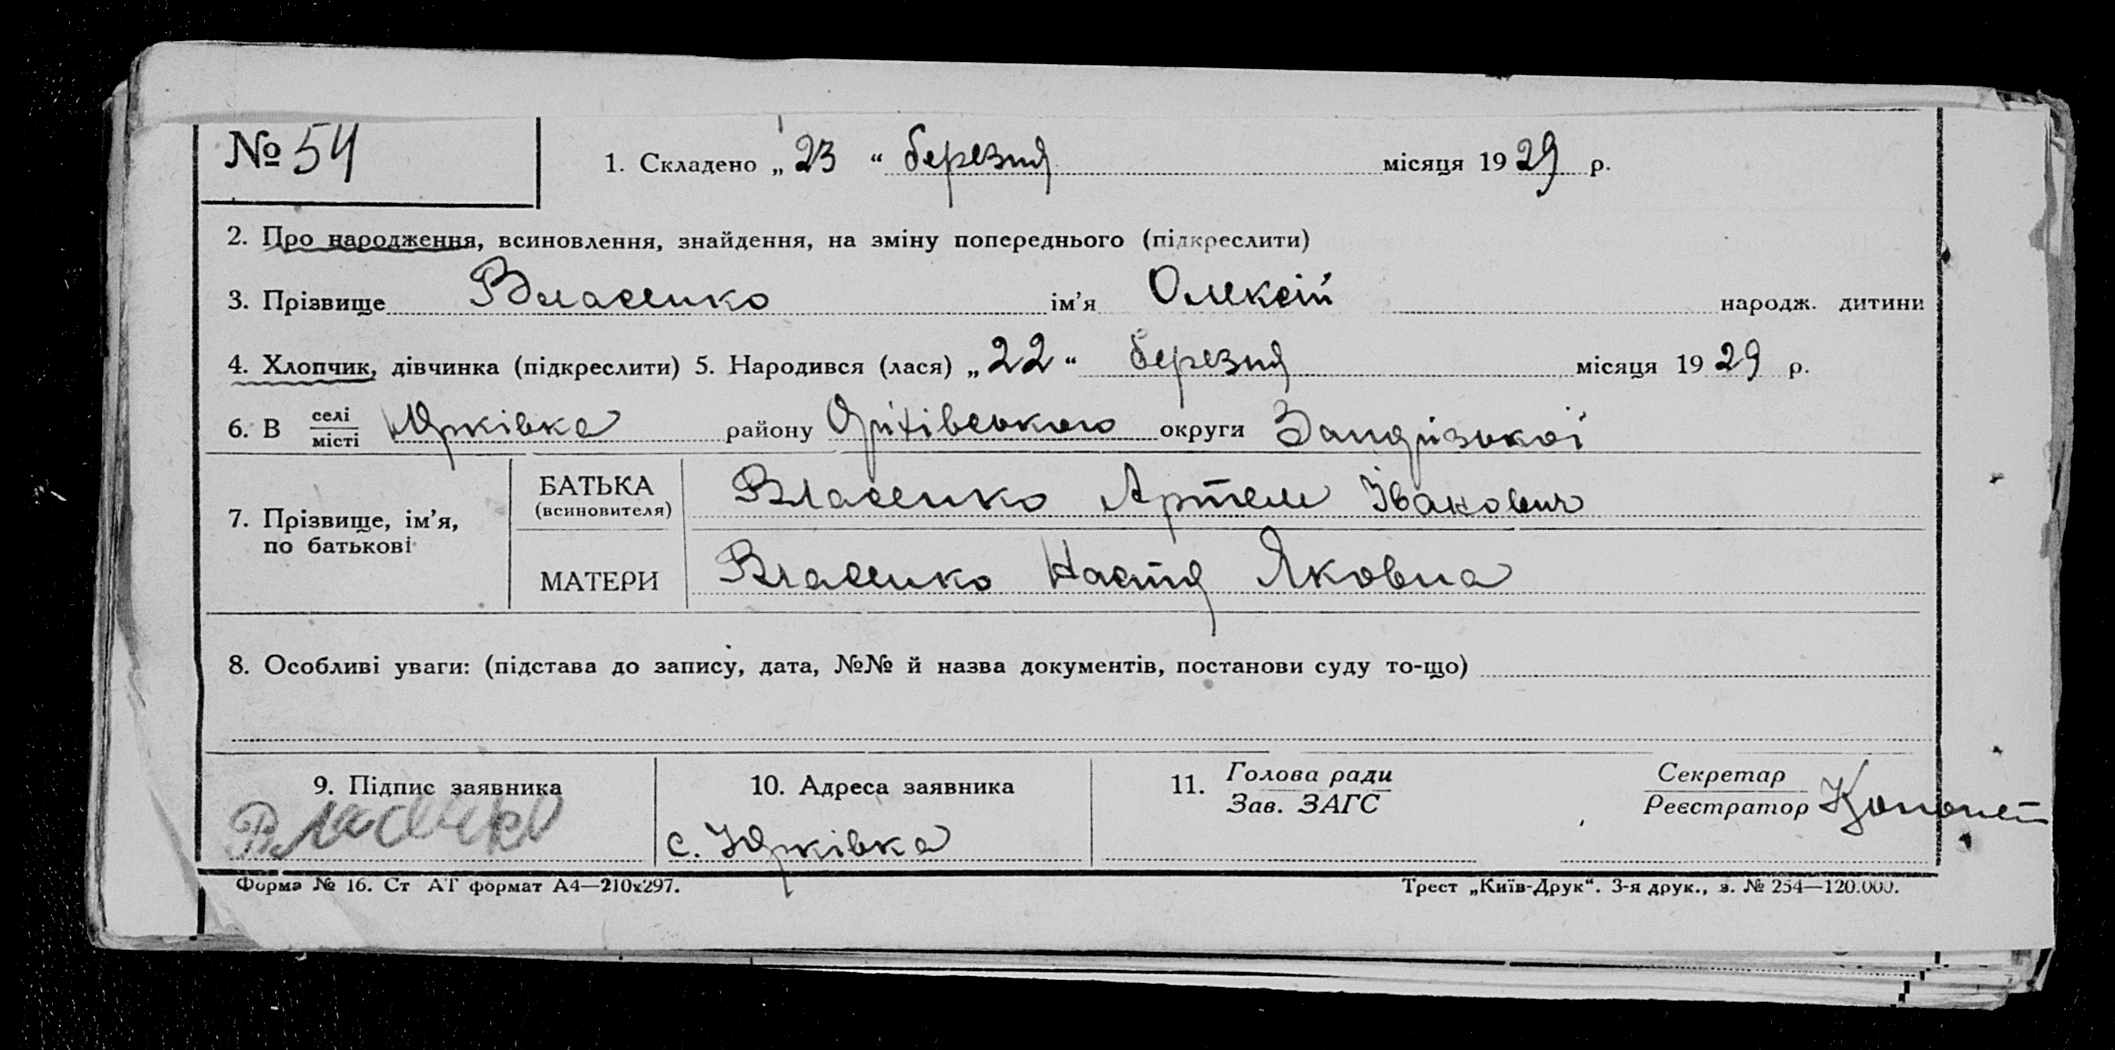 № 54 1. Складено „23“ березня місяця 1929 р.
2. Про народження, всиновлення, знайдення, на зміну попереднього (підкреслити)
3. Прізвище Власенко ім’я Олексій народж. дитини
4. Хлопчик, дівчинка (підкреслити) 5. Народився (лася) „22“ березня місяця 1929 р.
6. В селі/місті Юрківка району Оріхівського округи Запорізької
7. Прізвище, ім’я, по батькові
БАТЬКА (всиновителя) Власенко Артем Іванович
МАТЕРИ Власенко Настя Яковна
8. Особливі уваги: (підстава до запису, дата, №№ й назва документів, постанови суду то-що)
9. Підпис заявника 10. Адреса заявника 11. Голова ради/Зав. ЗАГС Секретар/Реєстратор
Власенко с. Юрківка
Форма № 16. Ст АТ формат А4—210х297. Трест „Київ-Друк“. 3-я друк., з. № 254—120.000.